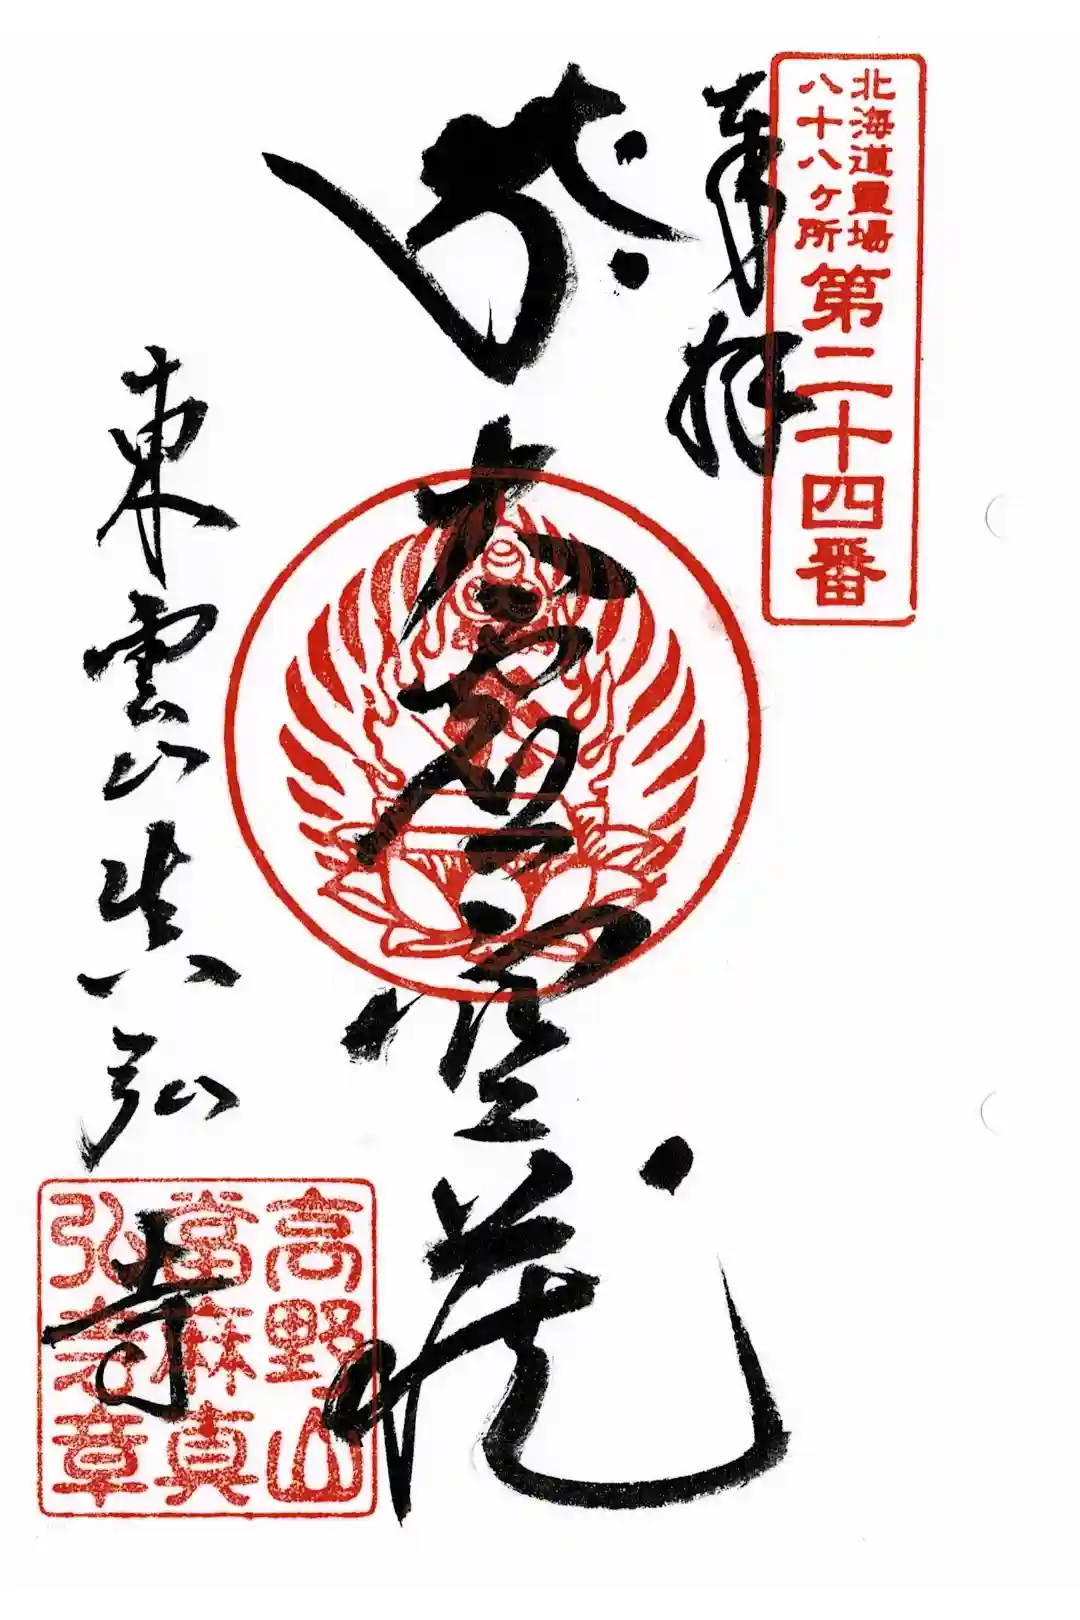 北海道霊場
八十八ヶ所
第二十四番
奉拝
大虚空蔵
東雲山真弘寺
高野山
當麻真
弘寺章